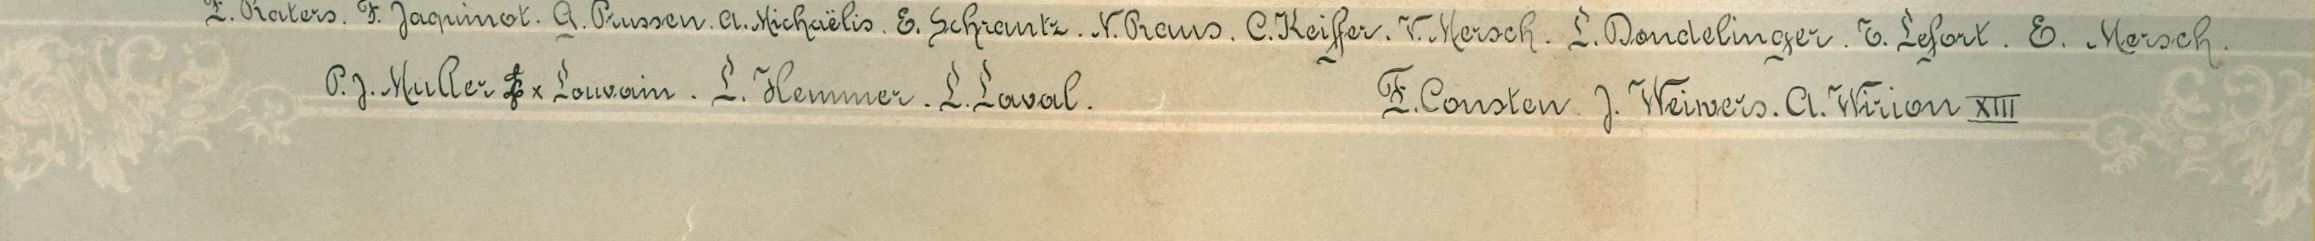 F. Raters. F. Jaquinot. G. Prussen. A. Michaëlis. E. Schrantz. N. Praus. C. Keiffer. V. Mersch. L. Dondelinger. T. Lefort. E. Mersch.
P. J. Muller x Louvain. L. Hemmer. L. Laval. F. Consten. J. Weivers. A. Wirion XIII